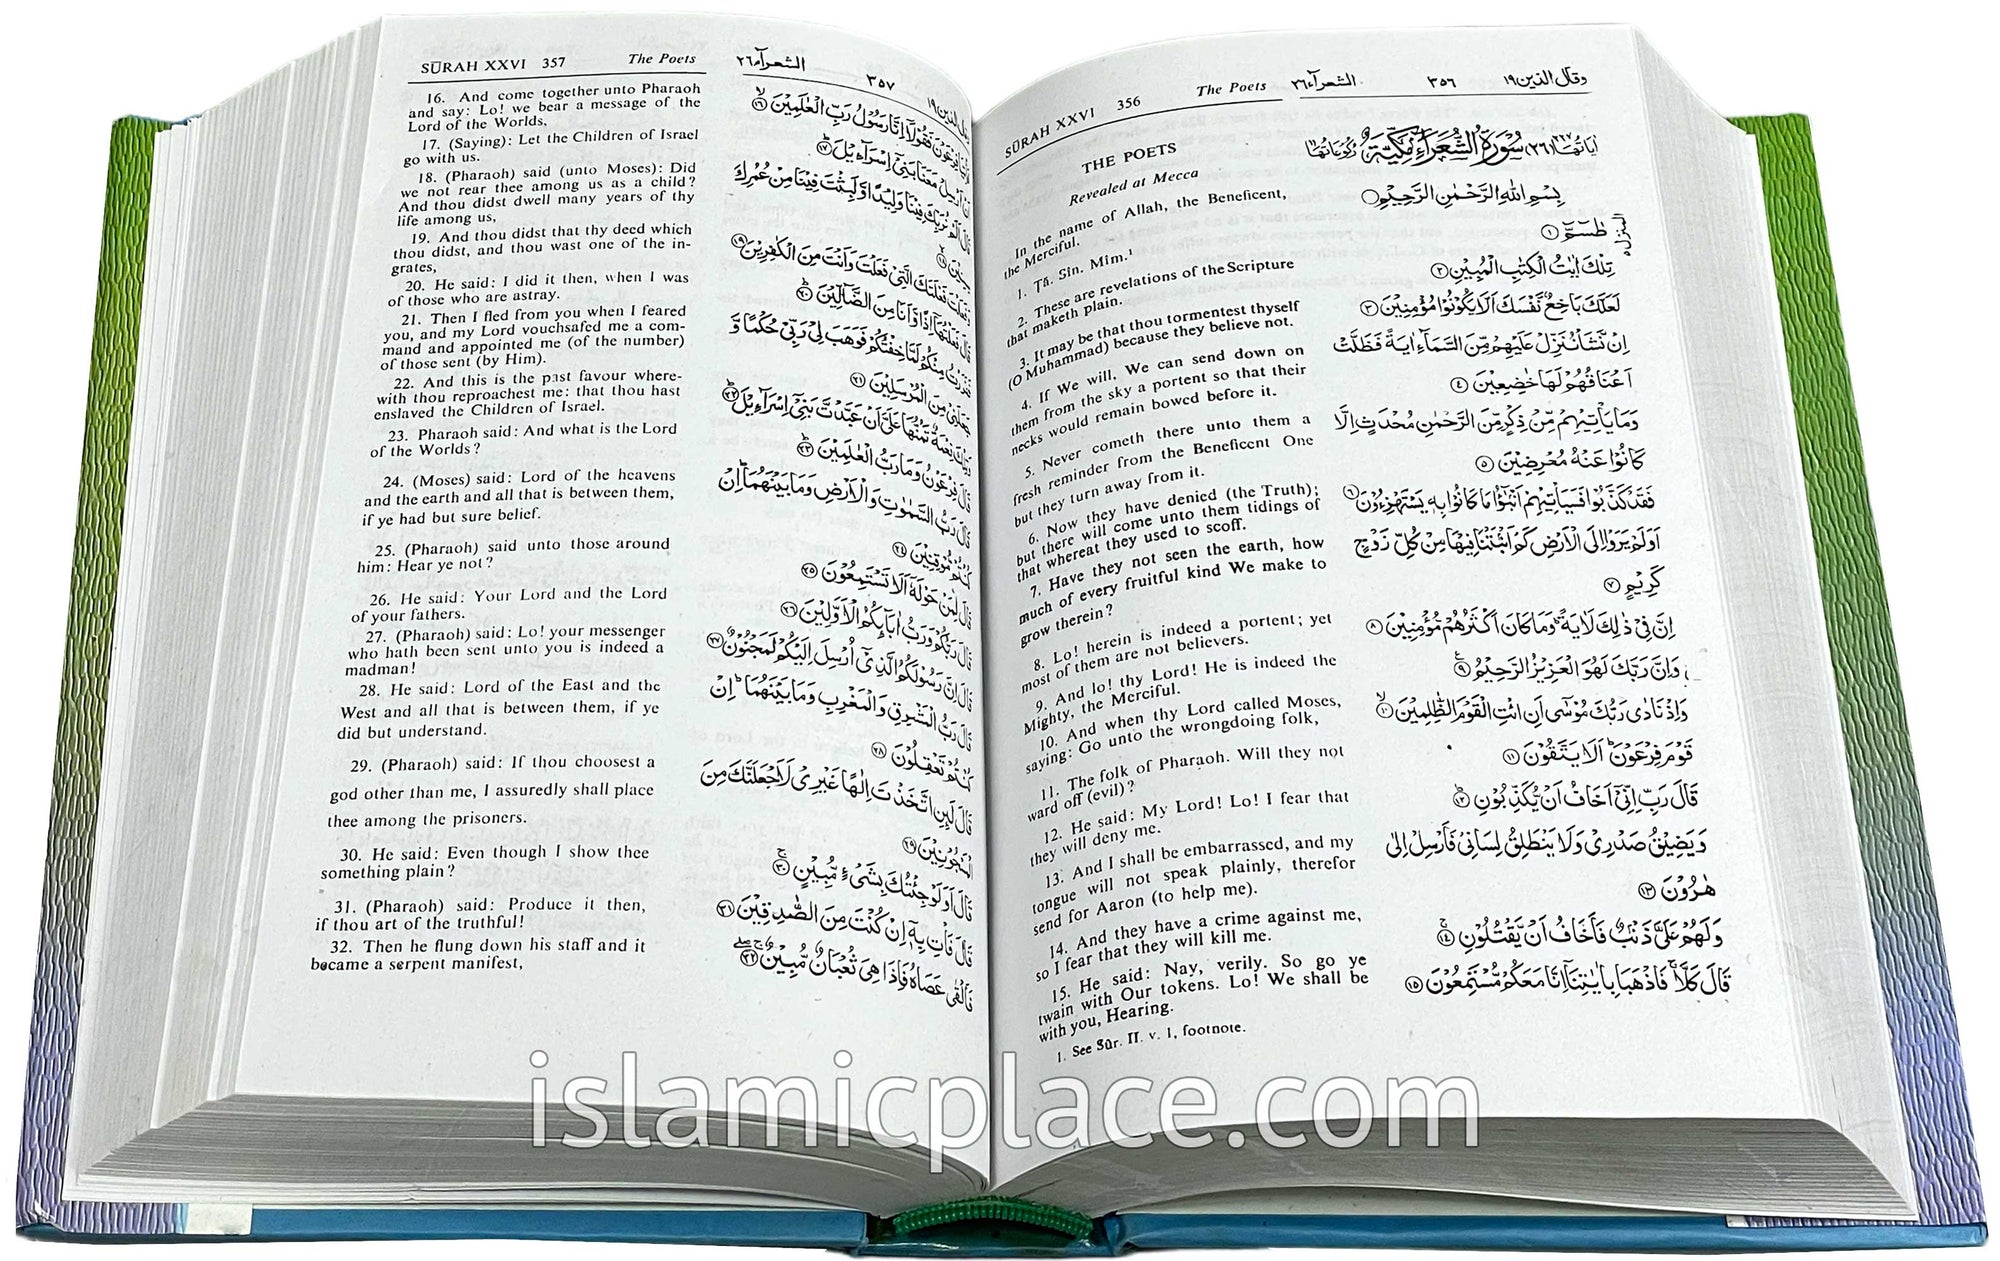 SŪRAH XXVI 356
The Poets
الشعرآء٢٦
٣٥٦
وقال الذين١٩
THE POETS
Revealed at Mecca
In the name of Allah, the Beneficent,
the Merciful.
1. Tā. Sîn. Mîm.¹
2. These are revelations of the Scripture
that maketh plain.
3. It may be that thou tormentest thyself
(O Muhammad) because they believe not.
4. If We will, We can send down on
them from the sky a portent so that their
necks would remain bowed before it.
5. Never cometh there unto them a
fresh reminder from the Beneficent One
but they turn away from it.
6. Now they have denied (the Truth);
but there will come unto them tidings of
that whereat they used to scoff.
7. Have they not seen the earth, how
much of every fruitful kind We make to
grow therein?
8. Lo! herein is indeed a portent; yet
most of them are not believers.
9. And lo! thy Lord! He is indeed the
Mighty, the Merciful.
10. And when thy Lord called Moses,
saying: Go unto the wrongdoing folk,
11. The folk of Pharaoh. Will they not
ward off (evil)?
12. He said: My Lord! Lo! I fear that
they will deny me.
13. And I shall be embarrassed, and my
tongue will not speak plainly, therefor
send for Aaron (to help me).
14. And they have a crime against me,
so I fear that they will kill me.
15. He said: Nay, verily. So go ye
twain with Our tokens. Lo! We shall be
with you, Hearing.
1. See Sûr. II. v. 1, footnote.
سُوْرَةُ الشُّعَرَآءِ مَكِّيَّةٌ
بِسْمِ اللهِ الرَّحْمٰنِ الرَّحِيْمِ
طٰسٓمّٓ ۝١
تِلْكَ اٰيٰتُ الْكِتٰبِ الْمُبِيْنِ ۝٢
لَعَلَّكَ بَاخِعٌ نَّفْسَكَ اَلَّا يَكُوْنُوْا مُؤْمِنِيْنَ ۝٣
اِنْ نَّشَأْ نُنَزِّلْ عَلَيْهِمْ مِّنَ السَّمَآءِ اٰيَةً فَظَلَّتْ
اَعْنَاقُهُمْ لَهَا خٰضِعِيْنَ ۝٤
وَمَا يَأْتِيْهِمْ مِّنْ ذِكْرٍ مِّنَ الرَّحْمٰنِ مُحْدَثٍ اِلَّا
كَانُوْا عَنْهُ مُعْرِضِيْنَ ۝٥
فَقَدْ كَذَّبُوْا فَسَيَأْتِيْهِمْ اَنْۢبٰٓؤُا مَا كَانُوْا بِهٖ يَسْتَهْزِءُوْنَ ۝٦
اَوَلَمْ يَرَوْا اِلَى الْاَرْضِ كَمْ اَنْۢبَتْنَا فِيْهَا مِنْ كُلِّ زَوْجٍ
كَرِيْمٍ ۝٧
اِنَّ فِيْ ذٰلِكَ لَاٰيَةً ۭ وَمَا كَانَ اَكْثَرُهُمْ مُّؤْمِنِيْنَ ۝٨
وَاِنَّ رَبَّكَ لَهُوَ الْعَزِيْزُ الرَّحِيْمُ ۝٩
وَاِذْ نَادٰى رَبُّكَ مُوْسٰٓى اَنِ ائْتِ الْقَوْمَ الظّٰلِمِيْنَ ۝١٠
قَوْمَ فِرْعَوْنَ ۭ اَلَا يَتَّقُوْنَ ۝١١
قَالَ رَبِّ اِنِّيْٓ اَخَافُ اَنْ يُّكَذِّبُوْنِ ۝١٢
وَيَضِيْقُ صَدْرِيْ وَلَا يَنْطَلِقُ لِسَانِيْ فَاَرْسِلْ اِلٰى
هٰرُوْنَ ۝١٣
وَلَهُمْ عَلَيَّ ذَنْۢبٌ فَاَخَافُ اَنْ يَّقْتُلُوْنِ ۝١٤
قَالَ كَلَّا ۚ فَاذْهَبَا بِاٰيٰتِنَآ اِنَّا مَعَكُمْ مُّسْتَمِعُوْنَ ۝١٥
SŪRAH XXVI 357
The Poets
الشعرآء٢٦
٣٥٧
16. And come together unto Pharaoh
and say: Lo! we bear a message of the
Lord of the Worlds,
17. (Saying): Let the Children of Israel
go with us.
18. (Pharaoh) said (unto Moses): Did
we not rear thee among us as a child?
And thou didst dwell many years of thy
life among us,
19. And thou didst that thy deed which
thou didst, and thou wast one of the in-
grates,
20. He said: I did it then, when I was
of those who are astray.
21. Then I fled from you when I feared
you, and my Lord vouchsafed me a com-
mand and appointed me (of the number)
of those sent (by Him).
22. And this is the past favour where-
with thou reproachest me: that thou hast
enslaved the Children of Israel.
23. Pharaoh said: And what is the Lord
of the Worlds?
24. (Moses) said: Lord of the heavens
and the earth and all that is between them,
if ye had but sure belief.
25. (Pharaoh) said unto those around
him: Hear ye not?
26. He said: Your Lord and the Lord
of your fathers.
27. (Pharaoh) said: Lo! your messenger
who hath been sent unto you is indeed a
madman!
28. He said: Lord of the East and the
West and all that is between them, if ye
did but understand.
29. (Pharaoh) said: If thou choosest a
god other than me, I assuredly shall place
thee among the prisoners.
30. He said: Even though I show thee
something plain?
31. (Pharaoh) said: Produce it then,
if thou art of the truthful!
32. Then he flung down his staff and it
became a serpent manifest,
فِرْعَوْنَ فَقُوْلَآ اِنَّا رَسُوْلُ رَبِّ الْعٰلَمِيْنَ ۝١٦
اَنْ اَرْسِلْ مَعَنَا بَنِيْٓ اِسْرَآءِيْلَ ۝١٧
قَالَ اَلَمْ نُرَبِّكَ فِيْنَا وَلِيْدًا وَّلَبِثْتَ فِيْنَا مِنْ عُمُرِكَ
سِنِيْنَ ۝١٨
وَفَعَلْتَ فَعْلَتَكَ الَّتِيْ فَعَلْتَ وَاَنْتَ مِنَ الْكٰفِرِيْنَ ۝١٩
قَالَ فَعَلْتُهَآ اِذًا وَّاَنَا مِنَ الضَّآلِّيْنَ ۝٢٠
فَفَرَرْتُ مِنْكُمْ لَمَّا خِفْتُكُمْ فَوَهَبَ لِيْ رَبِّيْ حُكْمًا وَّ
جَعَلَنِيْ مِنَ الْمُرْسَلِيْنَ ۝٢١
وَتِلْكَ نِعْمَةٌ تَمُنُّهَا عَلَيَّ اَنْ عَبَّدْتَّ بَنِيْٓ اِسْرَآءِيْلَ ۝٢٢
قَالَ فِرْعَوْنُ وَمَا رَبُّ الْعٰلَمِيْنَ ۝٢٣
قَالَ رَبُّ السَّمٰوٰتِ وَالْاَرْضِ وَمَا بَيْنَهُمَا ۭ اِنْ
كُنْتُمْ مُّوْقِنِيْنَ ۝٢٤
قَالَ لِمَنْ حَوْلَهٗٓ اَلَا تَسْتَمِعُوْنَ ۝٢٥
قَالَ رَبُّكُمْ وَرَبُّ اٰبَآئِكُمُ الْاَوَّلِيْنَ ۝٢٦
قَالَ اِنَّ رَسُوْلَكُمُ الَّذِيْٓ اُرْسِلَ اِلَيْكُمْ لَمَجْنُوْنٌ ۝٢٧
قَالَ رَبُّ الْمَشْرِقِ وَالْمَغْرِبِ وَمَا بَيْنَهُمَا ۭ اِنْ
كُنْتُمْ تَعْقِلُوْنَ ۝٢٨
قَالَ لَئِنِ اتَّخَذْتَ اِلٰهًا غَيْرِيْ لَاَجْعَلَنَّكَ مِنَ
الْمَسْجُوْنِيْنَ ۝٢٩
قَالَ اَوَلَوْ جِئْتُكَ بِشَيْءٍ مُّبِيْنٍ ۝٣٠
قَالَ فَأْتِ بِهٖٓ اِنْ كُنْتَ مِنَ الصّٰدِقِيْنَ ۝٣١
فَاَلْقٰى عَصَاهُ فَاِذَا هِيَ ثُعْبَانٌ مُّبِيْنٌ ۝٣٢
islamicplace.com